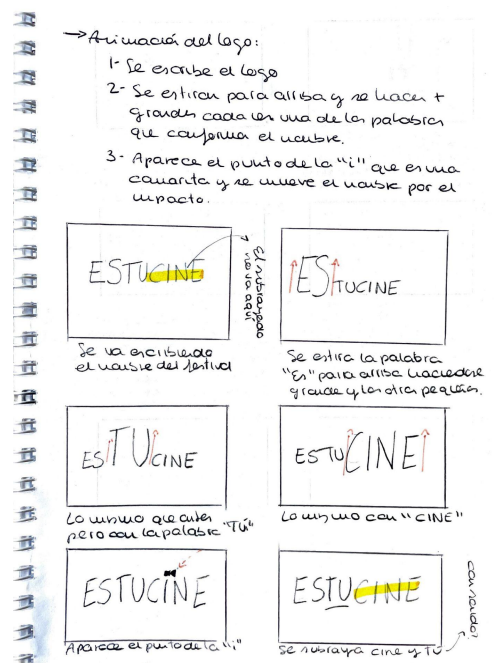 → Animación del logo:
1- Se escribe el logo
2- Se estiran para arriba y se hacen +
grandes cada un una de las palabras
que conforma el nombre.
3- Aparece el punto de la "i" que es una
camarita y se mueve el nombre por el
impacto.
ESTUCINE
El subrayado
no va aquí
Se va escribiendo
el nombre del festival
ESTUCINE
Se estira la palabra
"Es" para arriba haciendose
grande y las otras pequeñas.
ESTUCINE
Lo mismo que antes
pero con la palabra "Tú"
ESTUCINE
Lo mismo con "CINE"
ESTUCINE
Aparece el punto de la "i"
ESTUCINE
Se subraya cine y TÚ
con sonido?